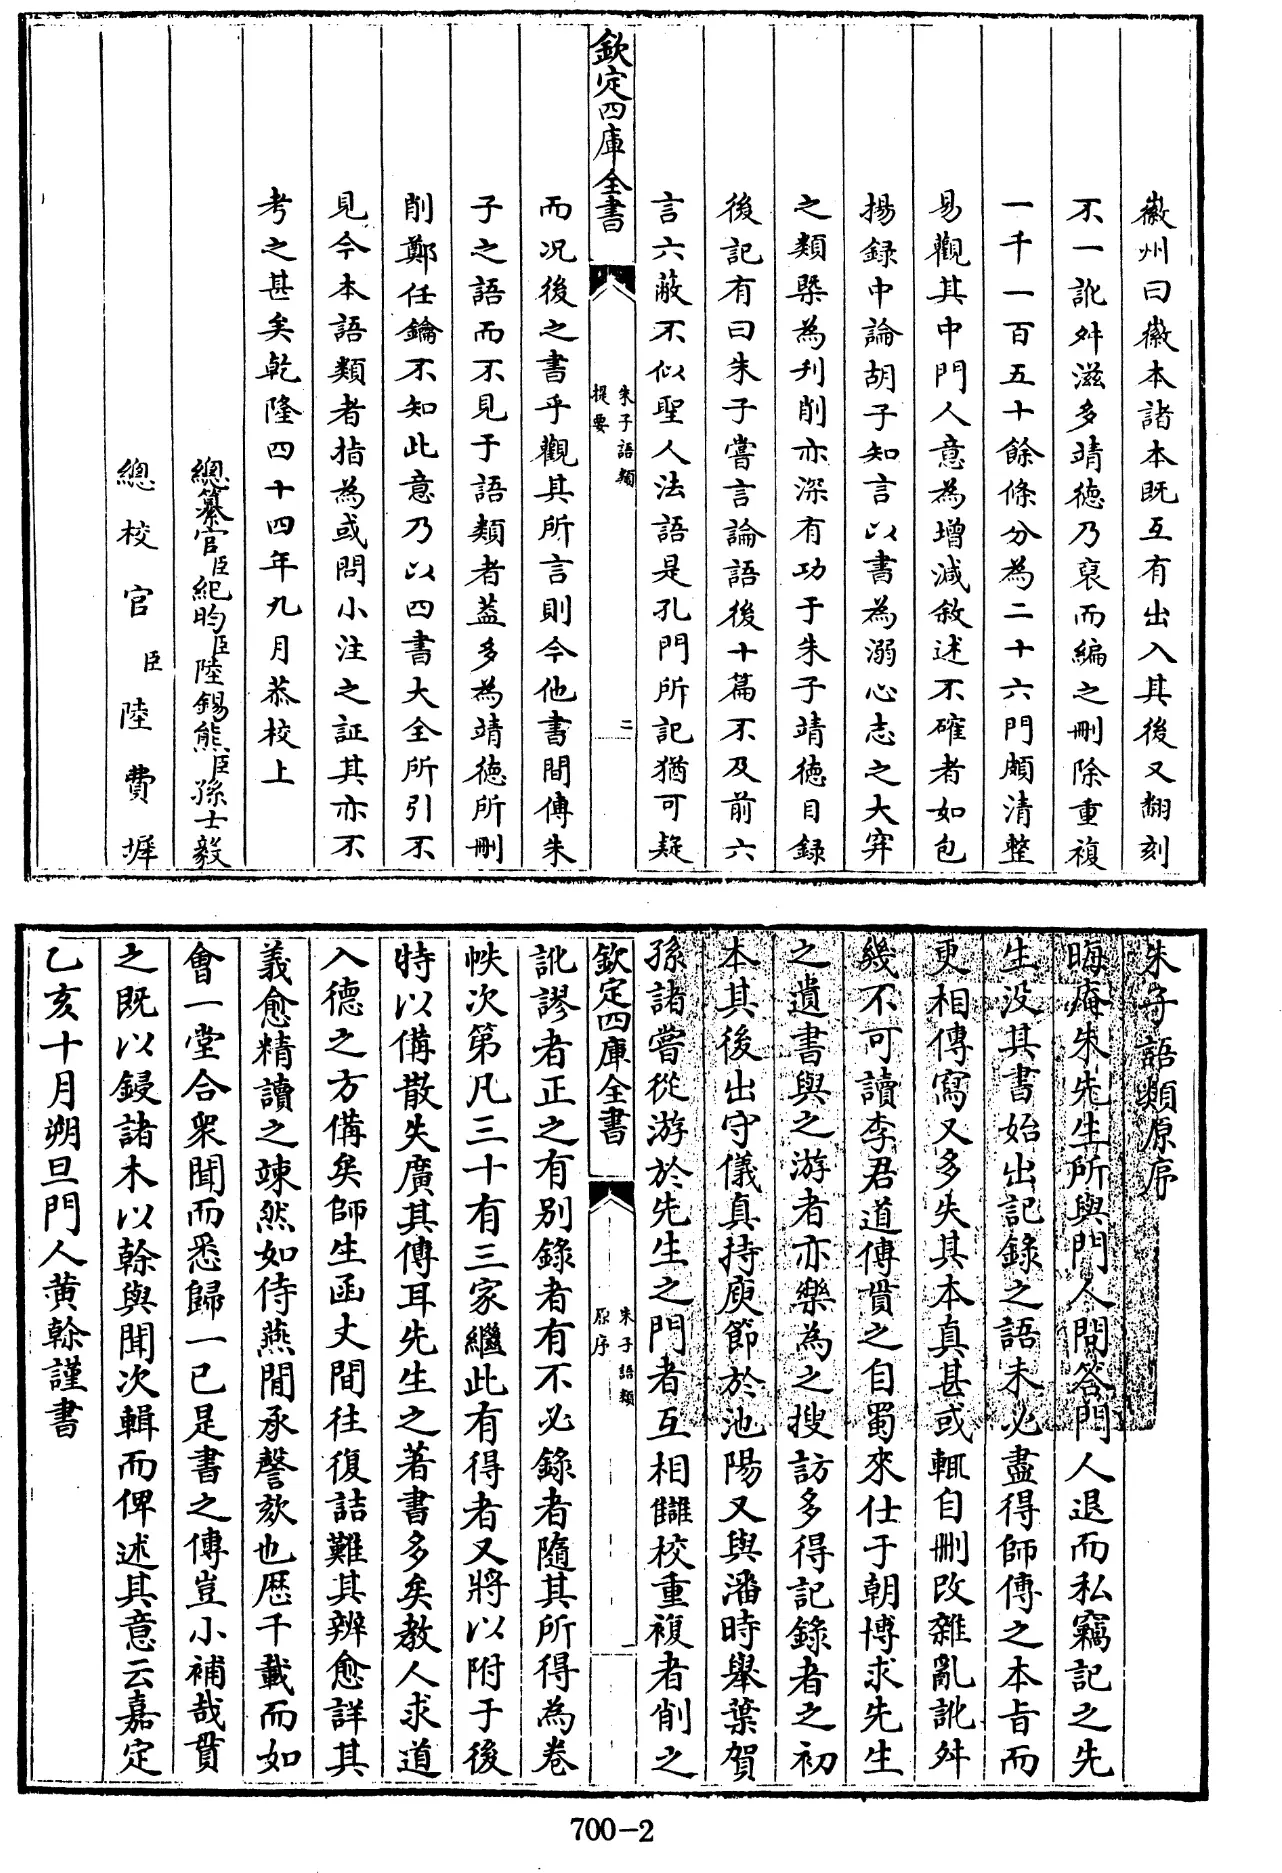 徽州曰徽本諸本既互有出入其後又翻刻
不一訛舛滋多靖徳乃裒而編之刪除重複
一千一百五十餘條分為二十六門頗清整
易觀其中門人意為增減敘述不確者如包
揚録中論胡子知言以書為溺心志之大穽
之類槩為刋削亦深有功于朱子靖徳目録
後記有曰朱子嘗言論語後十篇不及前六
言六蔽不似聖人法語是孔門所記猶可疑
欽定四庫全書
朱子語類
提要
二
而况後之書乎觀其所言則今他書間傳朱
子之語而不見于語類者葢多為靖徳所刪
削鄭任鑰不知此意乃以四書大全所引不
見今本語類者指為或問小注之証其亦不
考之甚矣乾隆四十四年九月恭校上
總纂官臣紀昀臣陸錫熊臣孫士毅
總校官臣陸費墀
朱子語類原序
晦庵朱先生所與門人問答門人退而私竊記之先
生没其書始出記錄之語未必盡得師傳之本旨而
更相傳寫又多失其本真甚或輒自刪改雜亂訛舛
幾不可讀李君道傳貫之自蜀來仕于朝博求先生
之遺書與之游者亦樂為之搜訪多得記錄者之初
本其後出守儀真持庾節於池陽又與潘時舉葉賀
孫諸嘗從游於先生之門者互相讎校重複者削之
欽定四庫全書
朱子語類
原序
一
訛謬者正之有別錄者有不必錄者隨其所得為卷
帙次第凡三十有三家繼此有得者又將以附于後
特以備散失廣其傳耳先生之著書多矣教人求道
入德之方備矣師生函丈間往復詰難其辨愈詳其
義愈精讀之竦然如侍燕閒承謦欬也歷千載而如
會一堂合衆聞而悉歸一己是書之傳豈小補哉貫
之既以鋟諸木以榦與聞次輯而俾述其意云嘉定
乙亥十月朔旦門人黄榦謹書
700-2